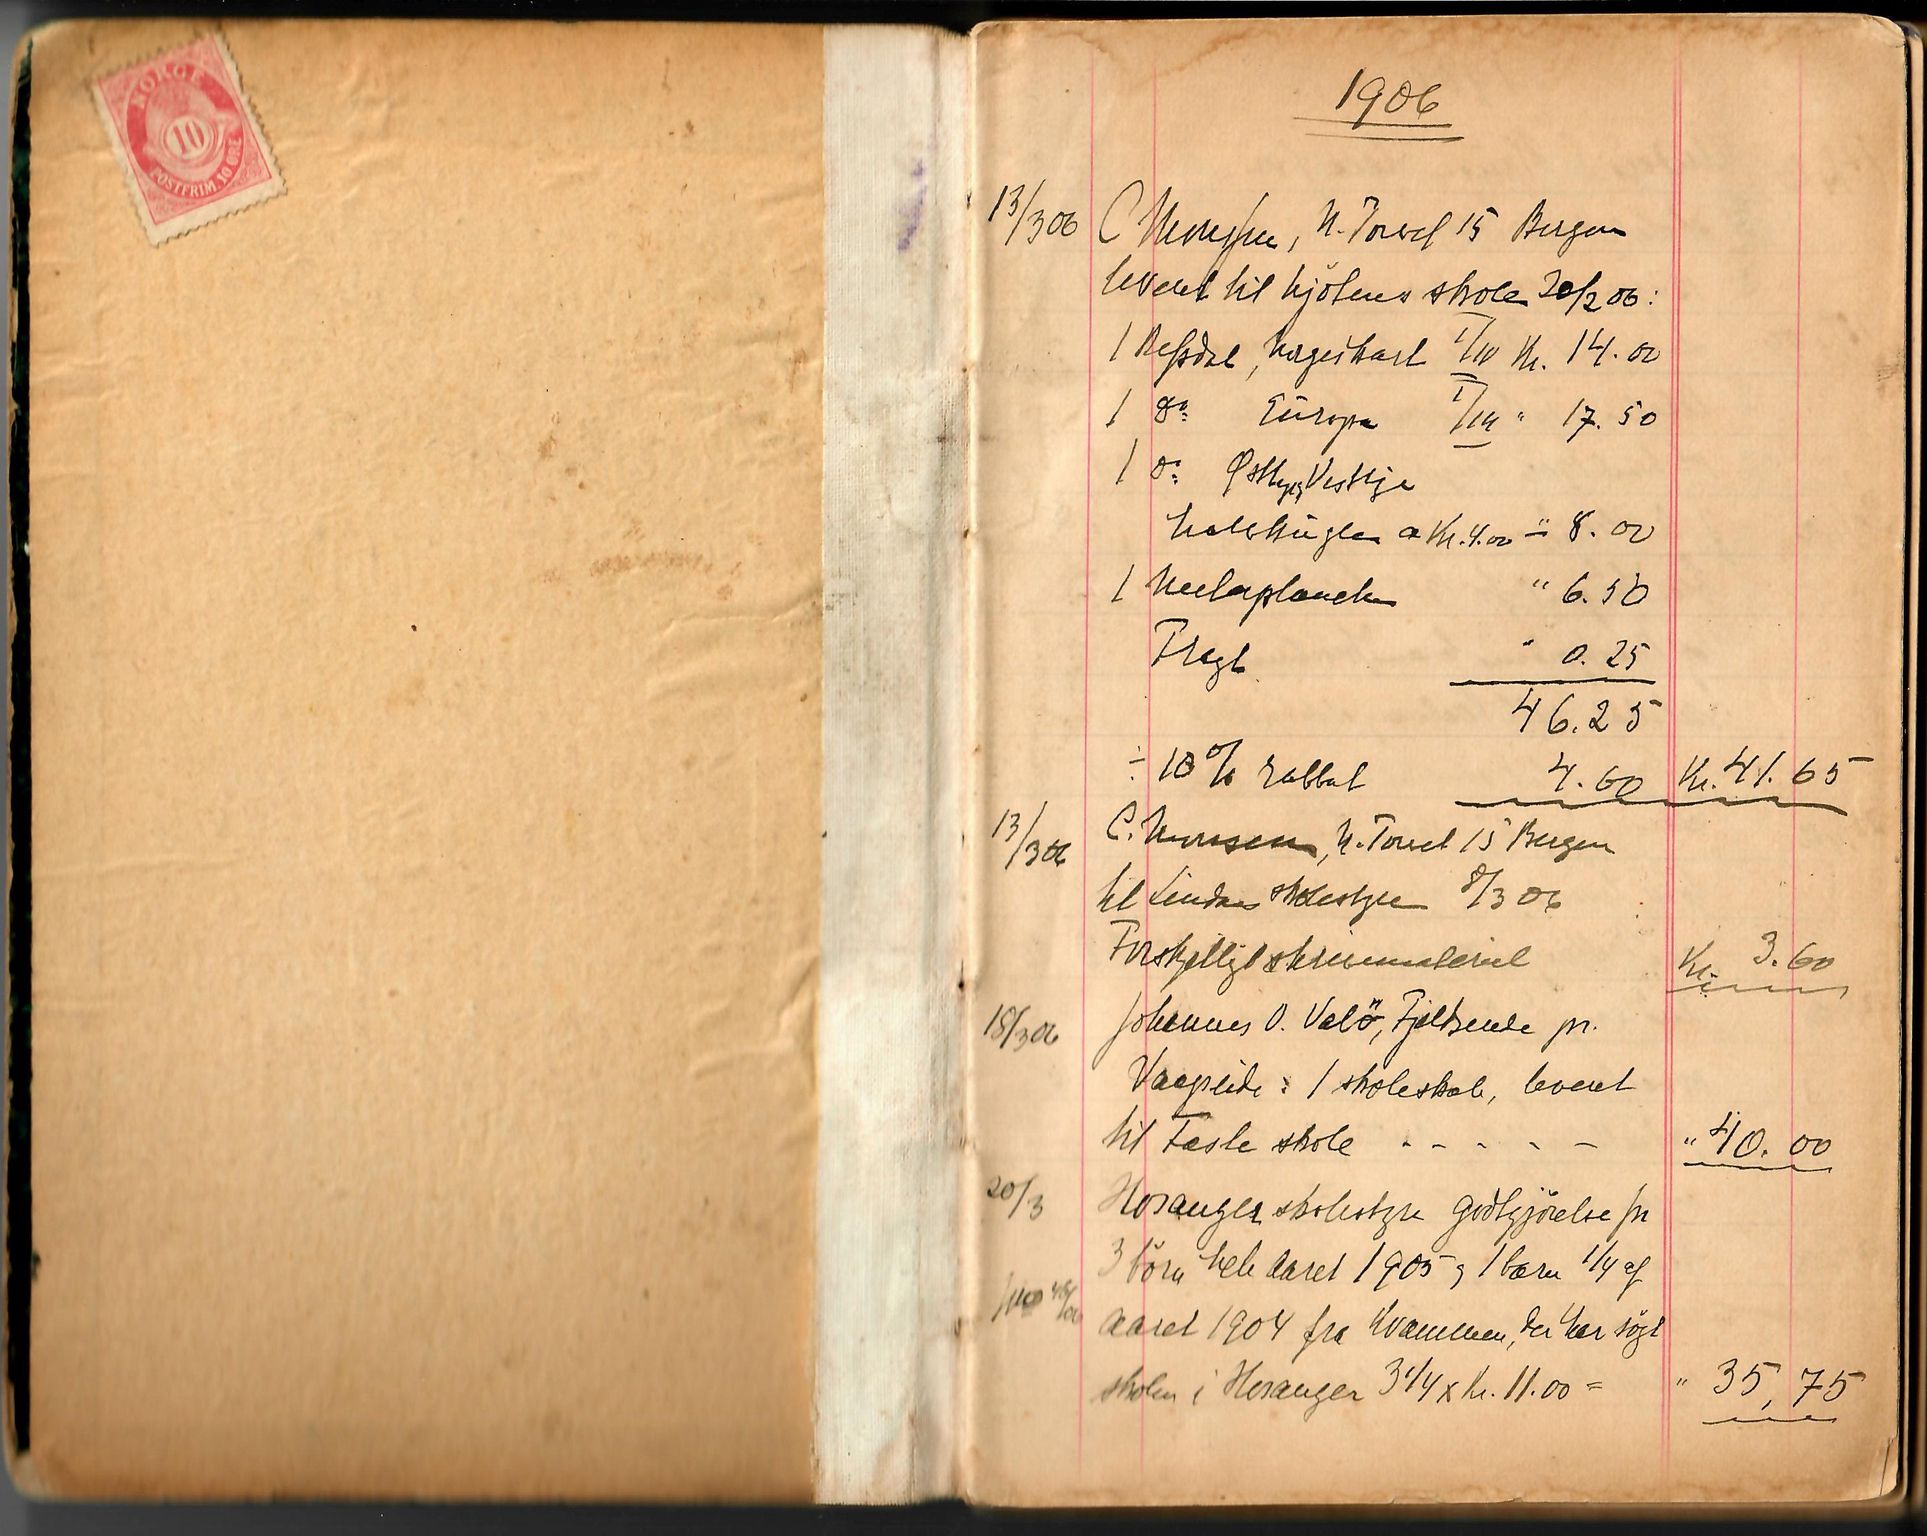 NORGE
10
POSTFRIM. 10 ØRE
1906
13/3 06 C Monssen, N. Torvet 15 Bergen
leveret til Kjötens skole 20/2 06:
1 Norgeskart I/IV Kr. 14.00
1 do Europa I/IV " 17.50
1 do Østlige, Vestlige
halvkugle a Kr. 4.00 = " 8.00
1 Meterplanche " 6.50
Fragt " 0.25
46.25
÷ 10 % rabbat 4.60 Kr. 41.65
13/3 06 C. Monssen, N. Torvet 15 Bergen
til Lindaas skolestyre 8/3 06
Forskjelligt skrivemateriel Kr. 3.60
18/3 06 Johannes O. Valö, Fjeldsende pr.
Vaageide: 1 skoleskab, leveret
til Fæste skole - - - - - " 40.00
20/3 Hosanger skolestyre godtgjörelse for
3 börn hele aaret 1905 og 1 barn 1/4 af
aaret 1904 fra Kvammen, der har sögt
skolen i Hosanger 3 1/4 x Kr. 11.00 = " 35,75